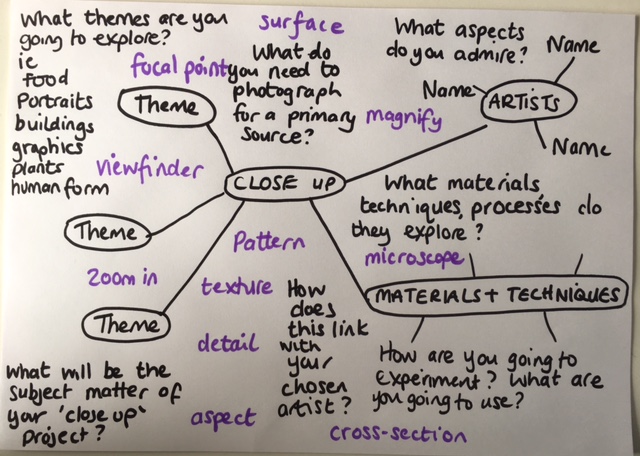 What themes are you
going to explore?
ie
food
Portraits
buildings
graphics
plants
human form
surface
focal point
What do
you need to
photograph
for a primary
source?
What aspects
do you admire?
Name
Name
ARTISTS
Name
Theme
magnify
viewfinder
CLOSE UP
What materials,
techniques, processes do
they explore?
Theme
Pattern
microscope
zoom in
texture
MATERIALS + TECHNIQUES
Theme
detail
How
does
this link
with
your
chosen
artist?
How are you going to
Experiment? What are
you going to use?
What will be the
subject matter of
your 'close up'
project?
aspect
cross-section